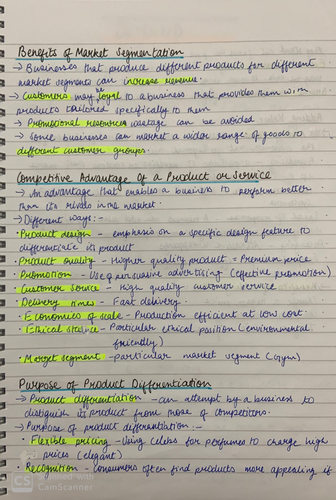 Benefits of Market Segmentation
→ Businesses that produce different products for different
market segments can increase revenue.
→ Customers may be loyal to a business that provides them with
products tailored specifically to them
→ Promotional resources wastage can be avoided
→ Some businesses can market a wider range of goods to
different customer groups.
Competitive Advantage of a Product or Service
→ An advantage that enables a business to perform better
than its rivals in the market.
→ Different ways:-
• Product design - emphasis on a specific design feature to
differentiate its product
• Product quality - Higher quality product = Premium price
• Promotion - Use of persuasive advertising (effective promotion)
• Customer service - High quality customer service
• Delivery times - Fast delivery.
• Economies of scale - Production efficient at low cost.
• Ethical stance - Particular ethical position (environmental
friendly)
• Market segment - particular market segment (gym)
Purpose of Product Differentiation
→ Product differentiation - an attempt by a business to
distiguish its product from those of competitors.
→ Purpose of product differentiation:-
• Flexible pricing - Using celebs for perfumes to charge high
prices (elegant)
• Recognition - Consumers often find products more appealing if
CS Scanned with
CamScanner